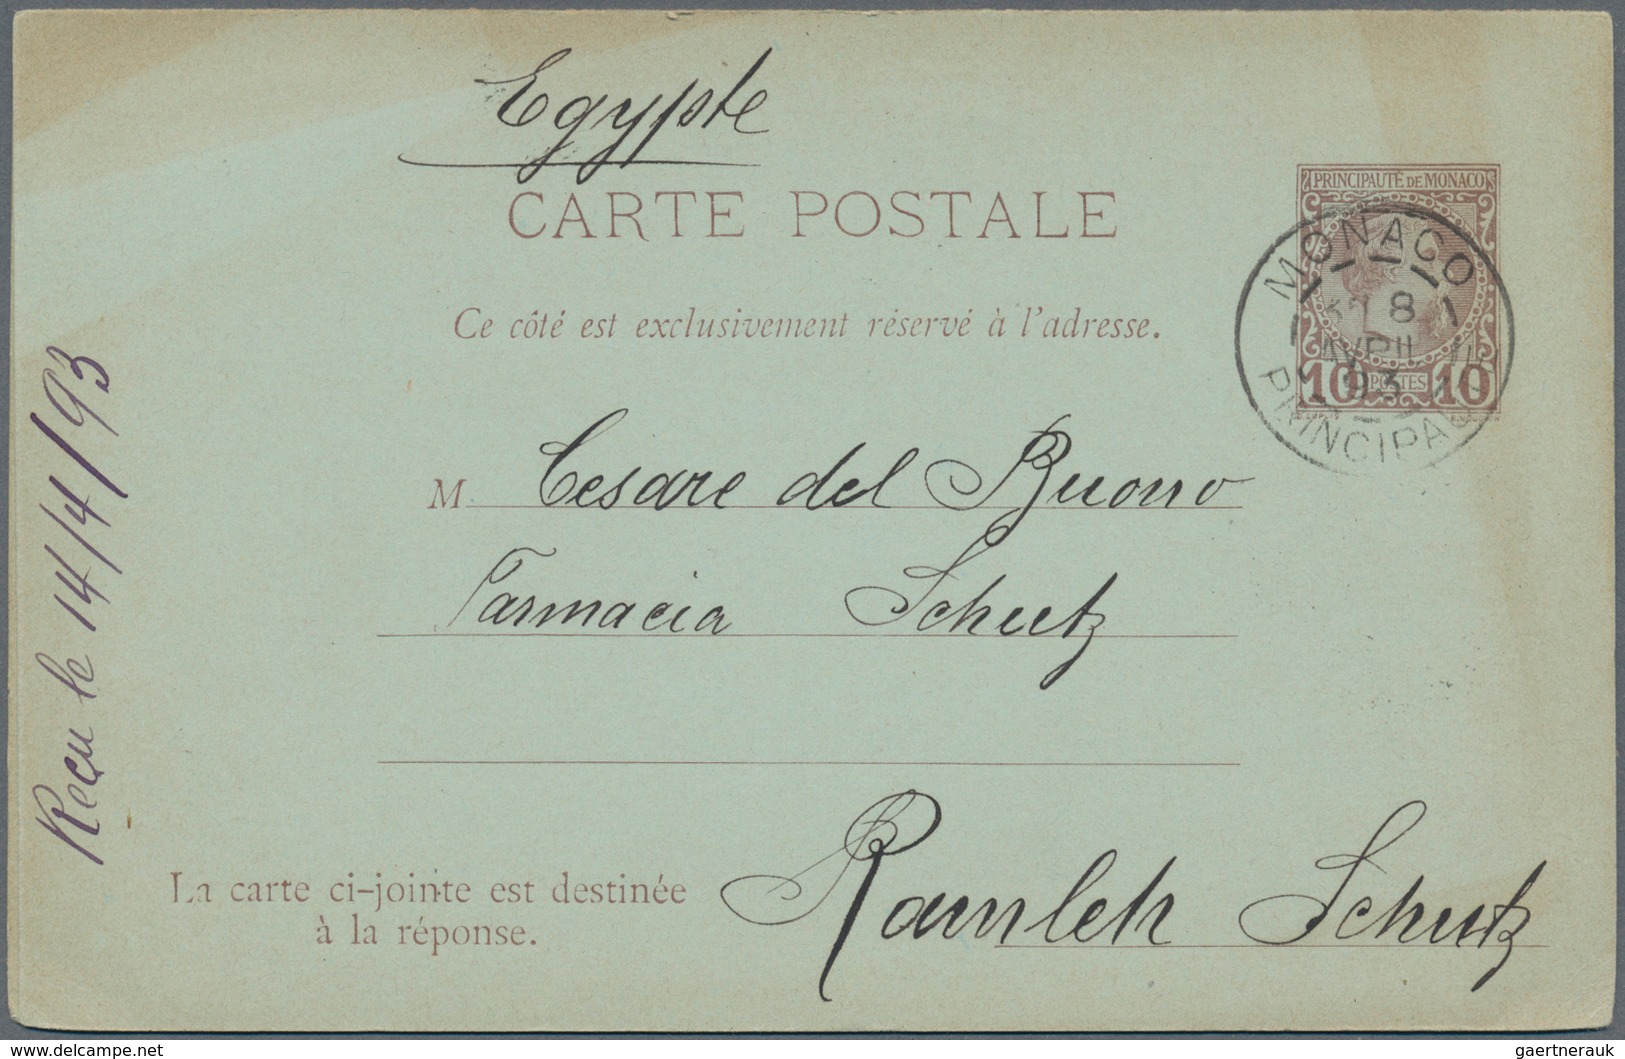 Egypte
CARTE POSTALE
PRINCIPAUTÉ DE MONACO
Ce côté est exclusivement réservé à l'adresse.
MONACO
8
AVRIL
93
PRINCIPAU
10 POSTES 10
M. Cesare del Buono
Farmacia Schutz
Ramleh Schutz
La carte ci-jointe est destinée
à la réponse.
Reçu le 14/4/93
www.delcampe.net
gaertnerauk